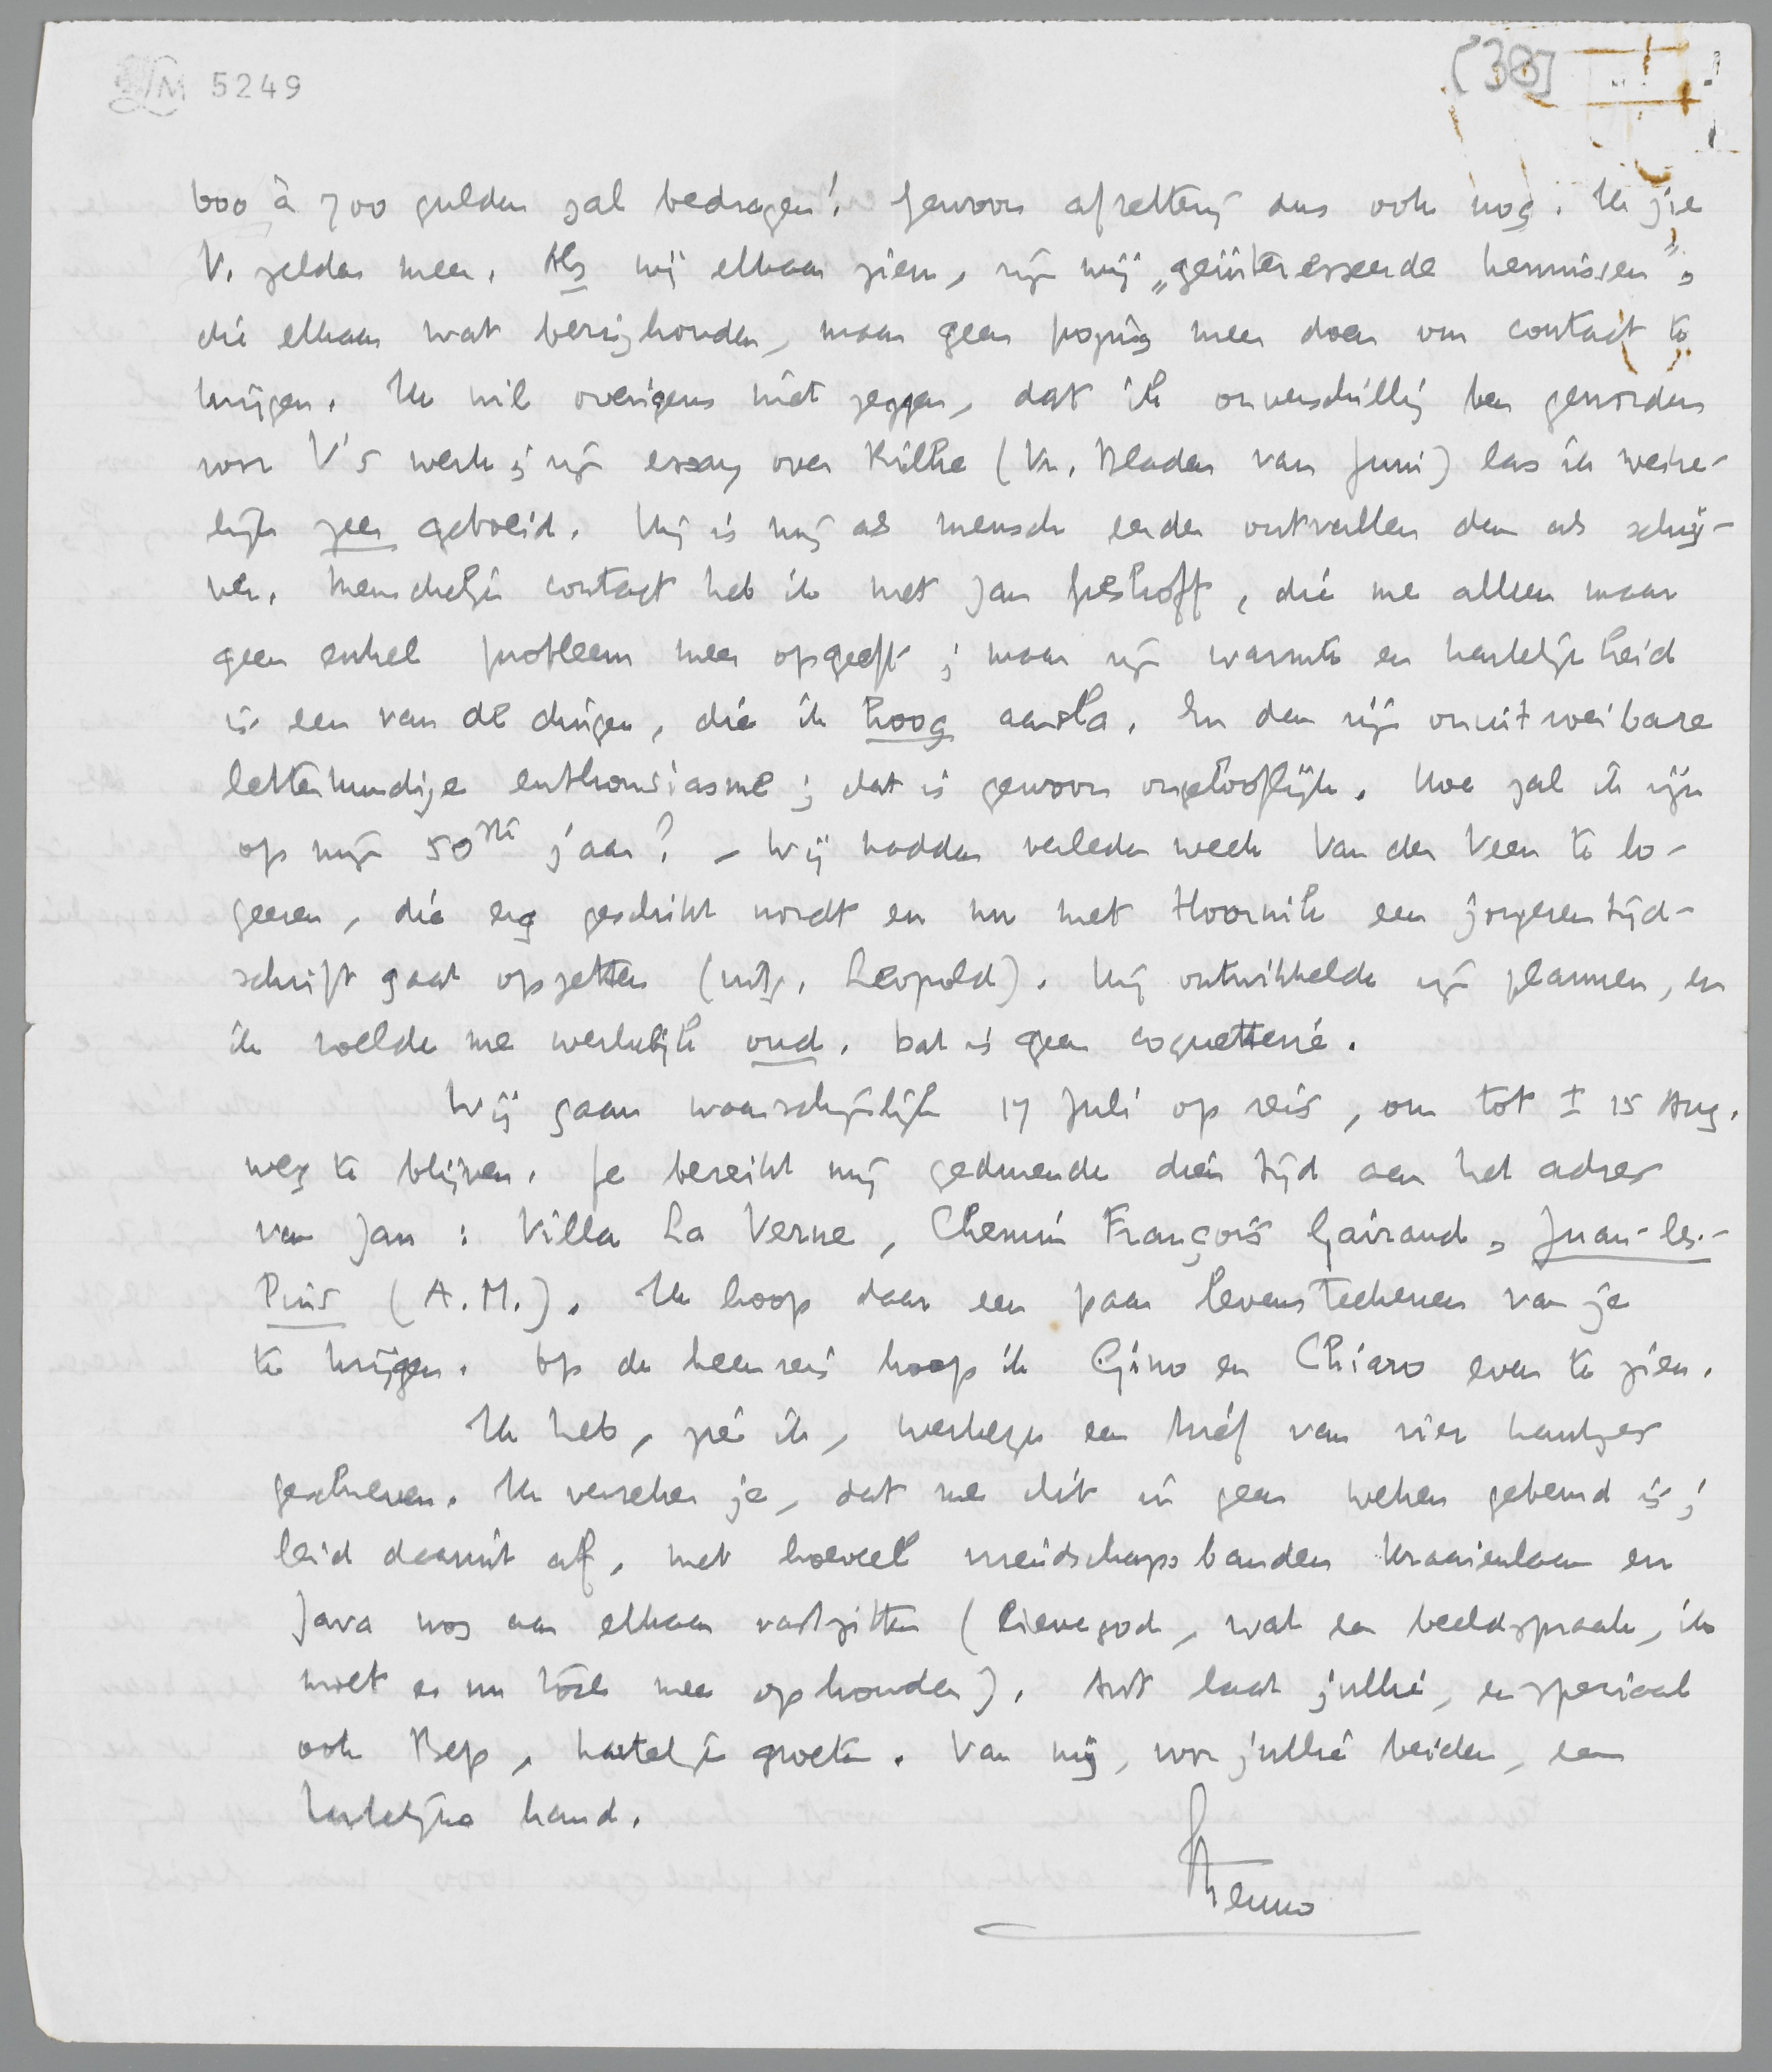 LM 5249
[38]
600 à 700 gulden zal bedragen! Gewoon afzetterij dus ook nog. Ik zie
V. zelden meer. Als wij elkaar zien, zijn wij „geïnteresseerde kennissen”,
die elkaar wat bezighouden, maar geen poging meer doen om contact te
krijgen. Ik wil overigens niet zeggen, dat ik onverschillig ben geworden
voor V's werk; zijn essay over Rilke (Vr. Bladen van Juni) las ik werke-
lijk zeer geboeid. Hij is mij als mensch eerder ontvallen dan als schrij-
ver. Menschelijk contact heb ik met Jan Greshoff, die me alleen maar
geen enkel probleem meer opgeeft; maar zijn warmte en hartelijkheid
is een van de dingen, die ik hoog aansla. En dan zijn onuitroeibare
letterkundige enthousiasme; dat is gewoon ongelooflijk. Hoe zal ik zijn
op mijn 50ste jaar? – Wij hadden verleden week Van der Veen te lo-
geeren, die erg geschikt wordt en nu met Hoornik een jongerentijd-
schrift gaat opzetten (uitg. Leopold). Hij ontwikkelde zijn plannen, en
ik voelde me werkelijk oud. Dat is geen coquetterie.
Wij gaan waarschijnlijk 17 Juli op reis, om tot ± 15 Aug.
weg te blijven. Je bereikt mij gedurende dien tijd aan het adres
van Jan: Villa La Verne, Chemin François Gairaud, Juan-les-
Pins (A.M.). Ik hoop daar een paar levensteekenen van je
te krijgen. Op de heenreis hoop ik Gino en Chiaro even te zien.
Ik heb, zie ik, werkelijk een brief van vier kantjes
geschreven. Ik verzeker je, dat me dit in geen weken gebeurd is;
leid daaruit af, met hoeveel vriendschapsbanden Kraaienlaan en
Java nog aan elkaar vastzitten (lievegod, wat een beeldspraak, ik
moet er nu heusch mee ophouden). Ant laat jullie, en speciaal
ook Bep, hartelijk groeten. Van mij, voor jullie beiden, een
hartelijke hand.
Menno